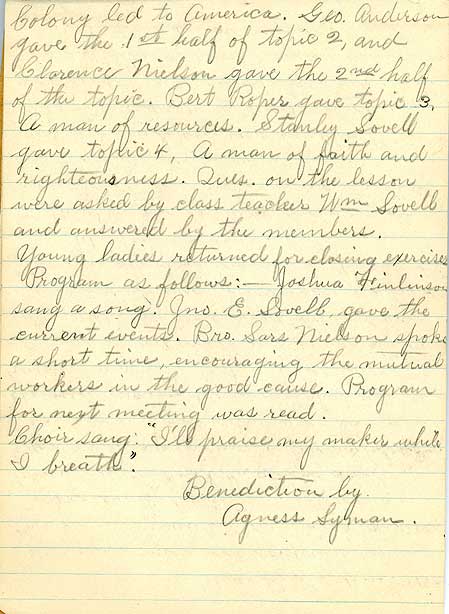 Colony led to America. Geo. Anderson
gave the 1st half of topic 2, and
Clarence Nielson gave the 2nd half
of the topic. Bert Roper gave topic 3,
A man of resources. Stanley Lovell
gave topic 4, A man of faith and
righteousness. Ques. on the lesson
were asked by class teacher Wm Lovell
and answered by the members.
Young ladies returned for closing exercises
Program as follows:— Joshua Finlinson
sang a song. Jno. E. Lovell, gave the
current events. Bro. Lars Nielson spoke
a short time, encouraging the mutual
workers in the good cause. Program
for next meeting was read.
Choir sang: "I'll praise my maker while
I breath".
Benediction by.
Agness Lyman.